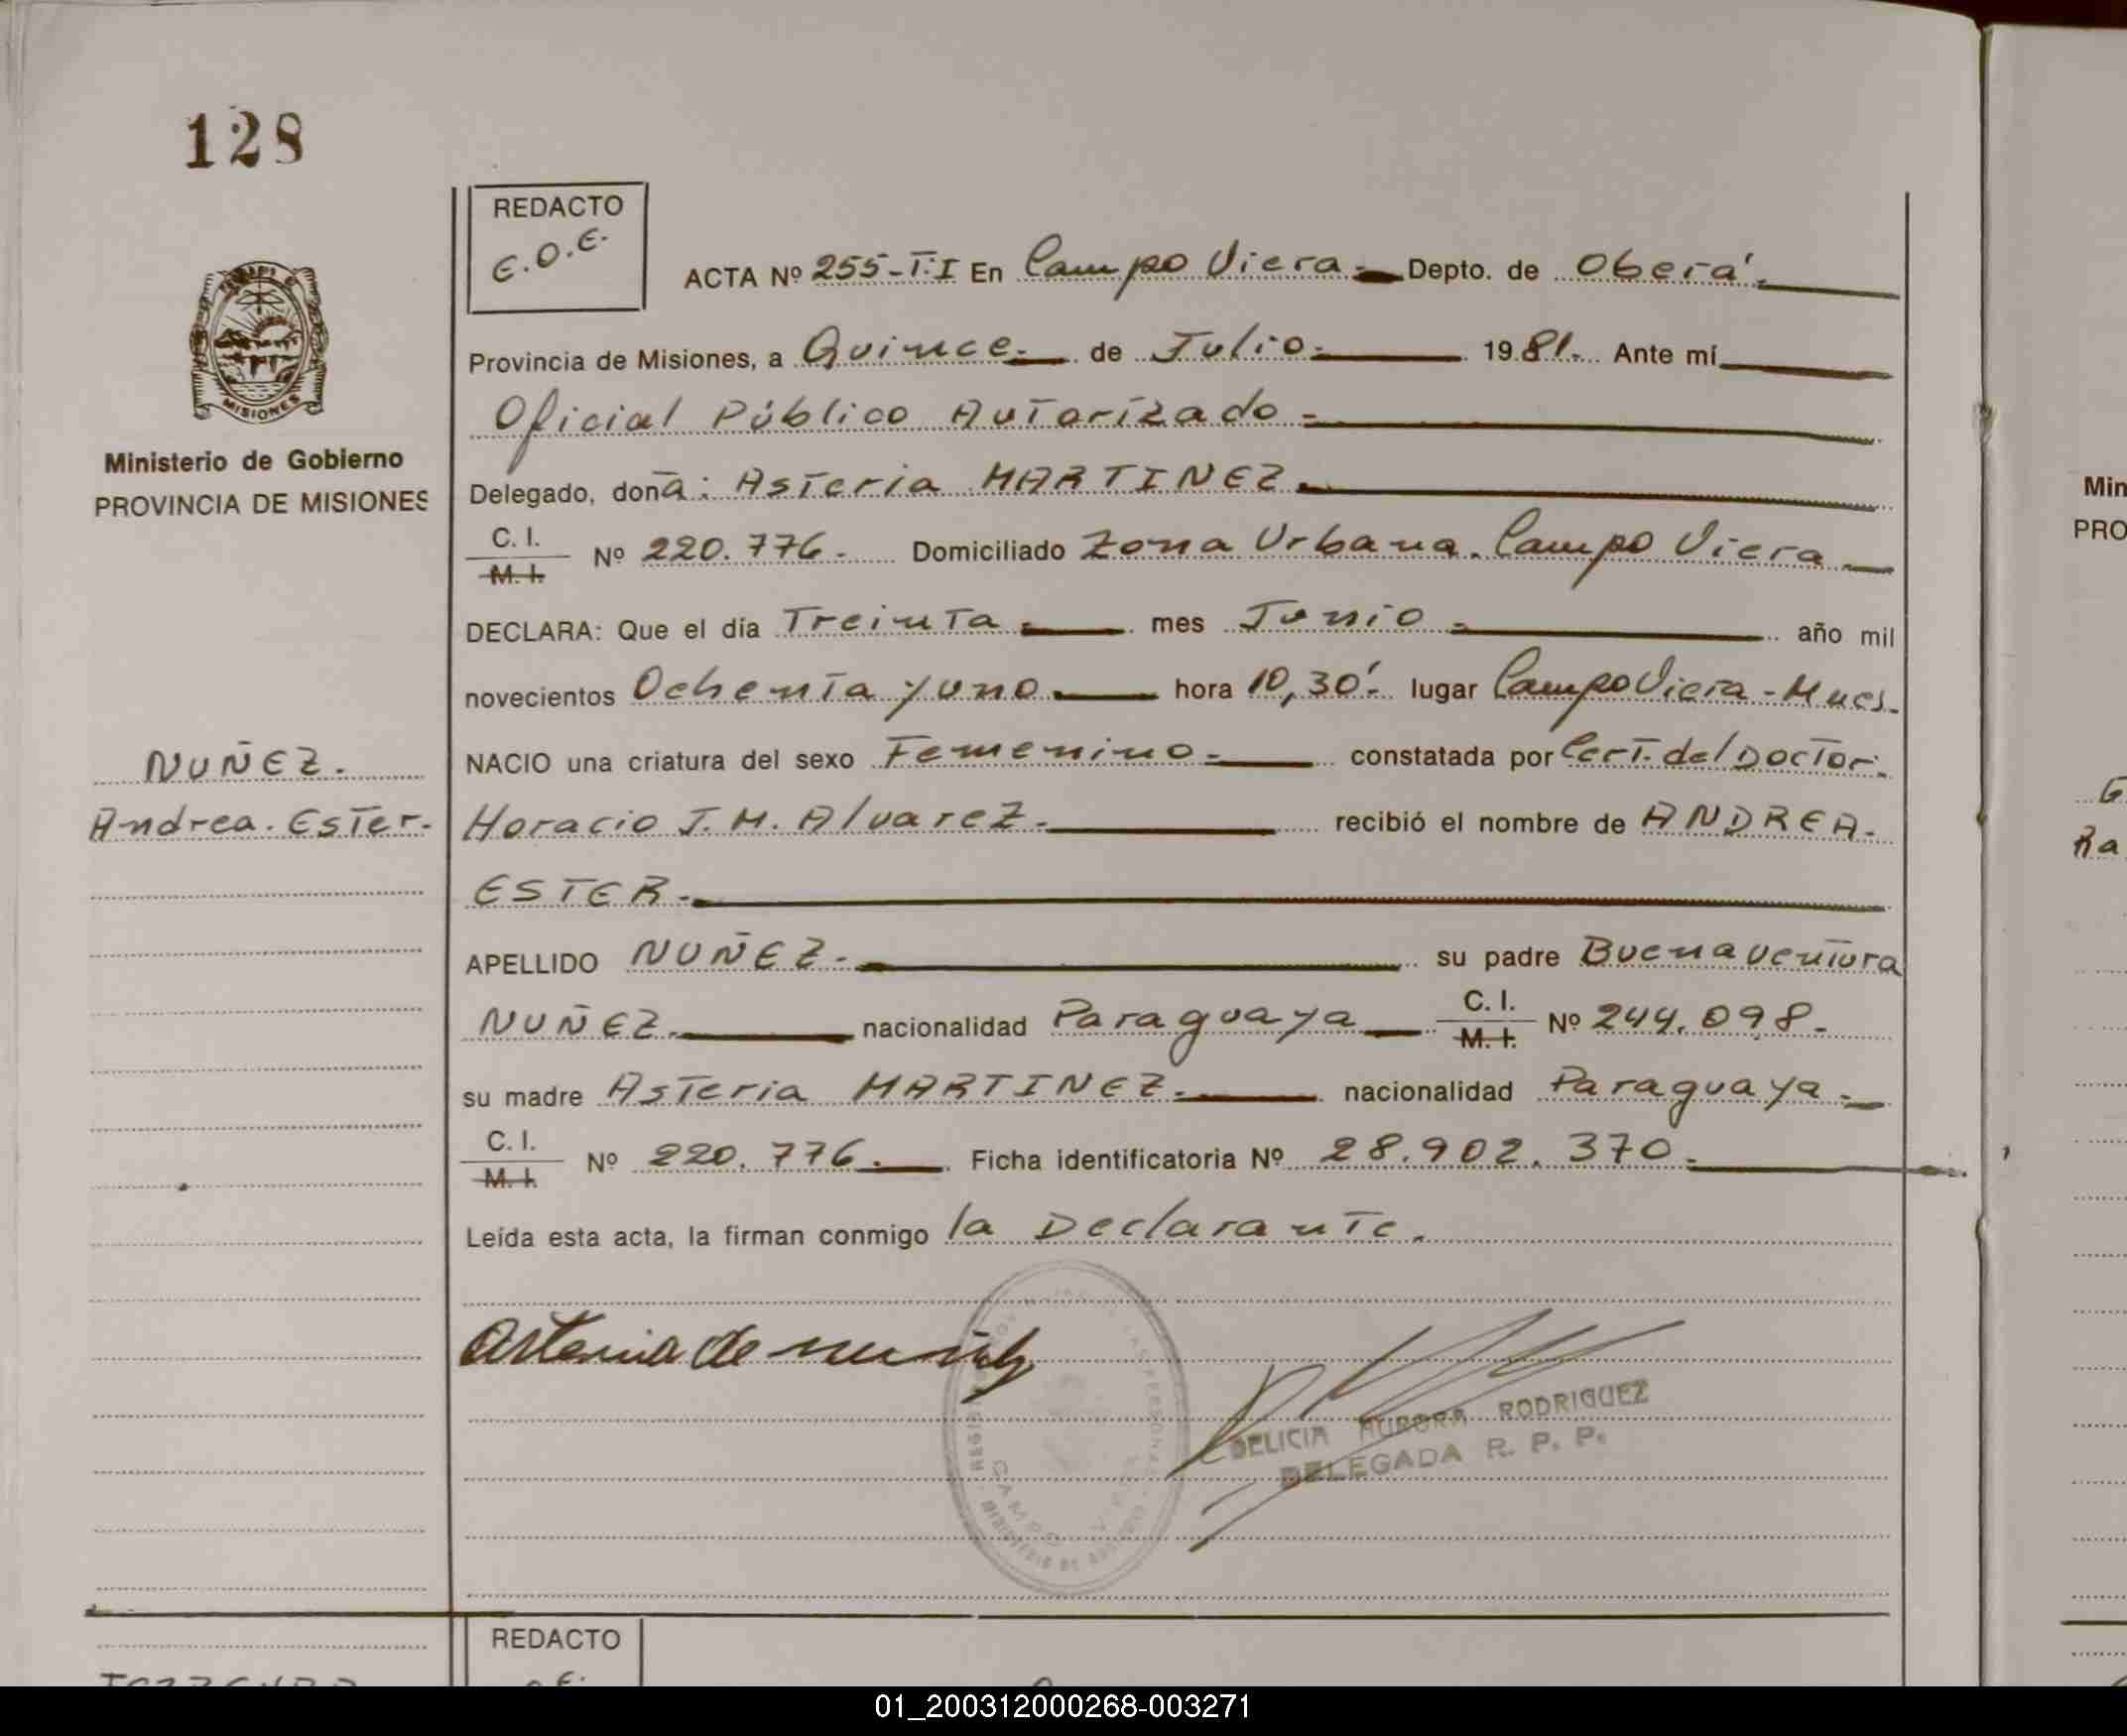 128
REDACTO
E.O.E.
ACTA Nº 255-T:I En Campo Viera.- Depto. de Oberá.
Provincia de Misiones, a Quince.- de Julio.- 1981.- Ante mí
Oficial Público Autorizado.-
Delegado, doña: Asteria MARTINEZ.
C. I.
M. I.
Nº 220.776.- Domiciliado Zona Urbana. Campo Viera
DECLARA: Que el día Treinta.- mes Junio.- año mil
novecientos Ochenta y uno.- hora 10,30'.- lugar Campo Viera - Mnes.
NACIO una criatura del sexo Femenino.- constatada por Cert. del Doctor.
Horacio J. M. Alvarez.- recibió el nombre de ANDREA.
ESTER.-
APELLIDO NUÑEZ.- su padre Buenaventura
NUÑEZ. nacionalidad Paraguaya
C. I.
M. I.
Nº 244.098.-
su madre Asteria MARTINEZ.- nacionalidad Paraguaya.-
C. I.
M. I.
Nº 220.776. Ficha identificatoria Nº 28.902.370.-
Leída esta acta, la firman conmigo la Declarante.
Asteria de nuñez
DELICIA AURORA RODRIGUEZ
DELEGADA R. P. P.
CAMPO VIERA
MISIONES
Ministerio de Gobierno
PROVINCIA DE MISIONES
NUÑEZ.
Andrea. Ester.
REDACTO
Min
PRO
G
Ra
01_200312000268-003271